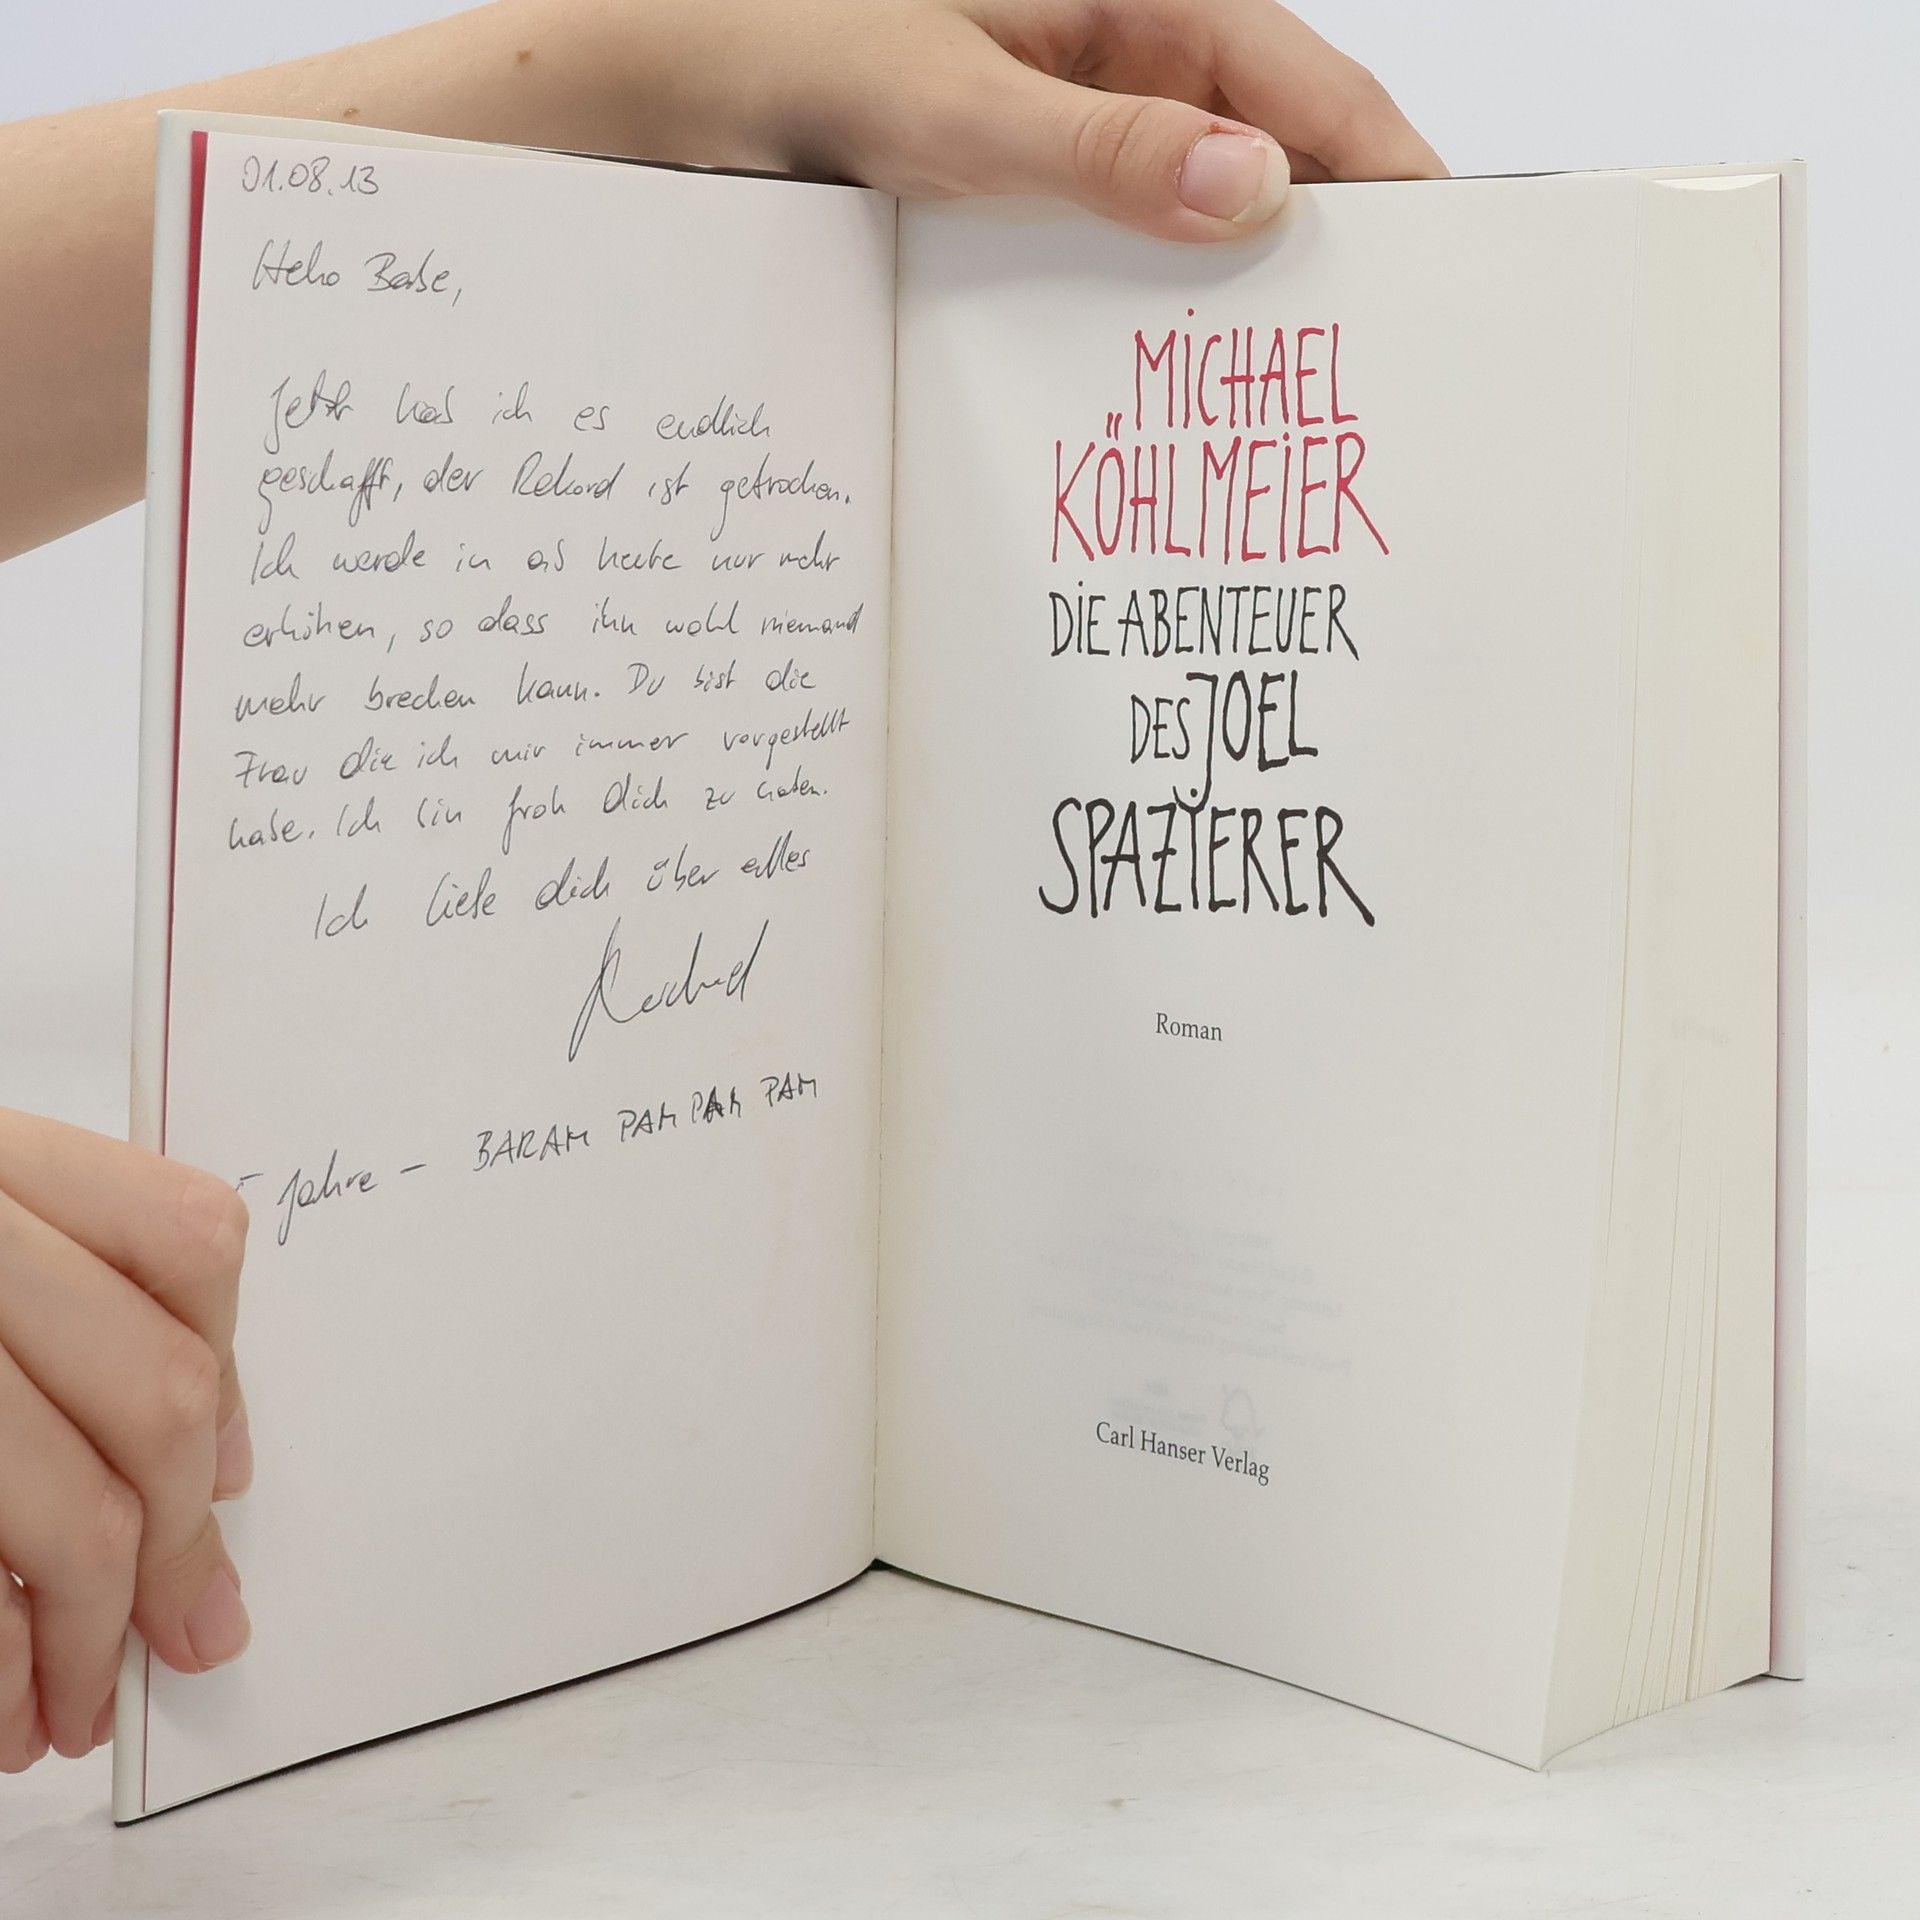 01.08.13
Hello Babe,
Jetzt hab ich es endlich
geschafft, der Rekord ist gebrochen.
Ich werde in ab heute nur mehr
erhöhen, so dass ihn wohl niemand
mehr brechen kann. Du bist die
Frau die ich mir immer vorgestellt
habe. Ich bin froh dich zu haben.
Ich liebe dich über alles
Jahre - BARAM PAM PAM PAM
MICHAEL
KÖHLMEIER
DIE ABENTEUER
DES JOEL
SPAZIERER
Roman
Carl Hanser Verlag